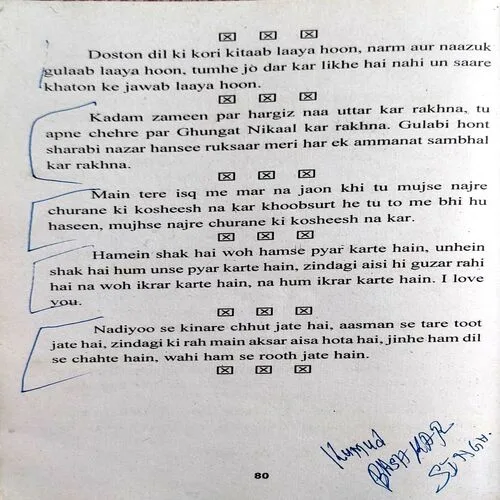 Doston dil ki kori kitaab laaya hoon, narm aur naazuk
gulaab laaya hoon, tumhe jo dar kar likhe hai nahi un saare
khaton ke jawab laaya hoon.
Kadam zameen par hargiz naa uttar kar rakhna, tu
apne chehre par Ghungat Nikaal kar rakhna. Gulabi hont
sharabi nazar hansee ruksaar meri har ek ammanat sambhal
kar rakhna.
Main tere isq me mar na jaon khi tu mujse najre
churane ki kosheesh na kar khoobsurt he tu to me bhi hu
haseen, mujhse najre churane ki kosheesh na kar.
Hamein shak hai woh hamse pyar karte hain, unhein
shak hai hum unse pyar karte hain, zindagi aisi hi guzar rahi
hai na woh ikrar karte hain, na hum ikrar karte hain. I love
you.
Nadiyoo se kinare chhut jate hai, aasman se tare toot
jate hai, zindagi ki rah main aksar aisa hota hai, jinhe ham dil
se chahte hain, wahi ham se rooth jate hain.
Kumud
SINGH.
80